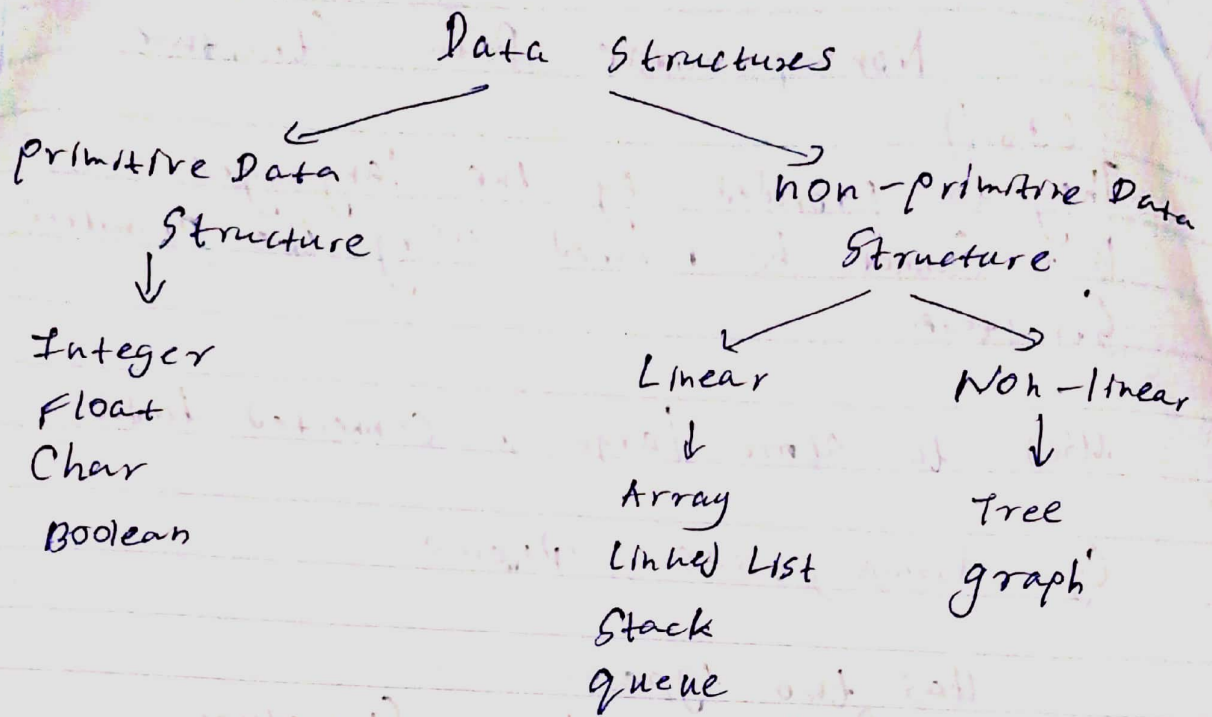 Data Structures
Primitive Data
Structure
Integer
Float
Char
Boolean
non-primitive Data
Structure
Linear
Array
Linked List
Stack
queue
Non-linear
Tree
graph